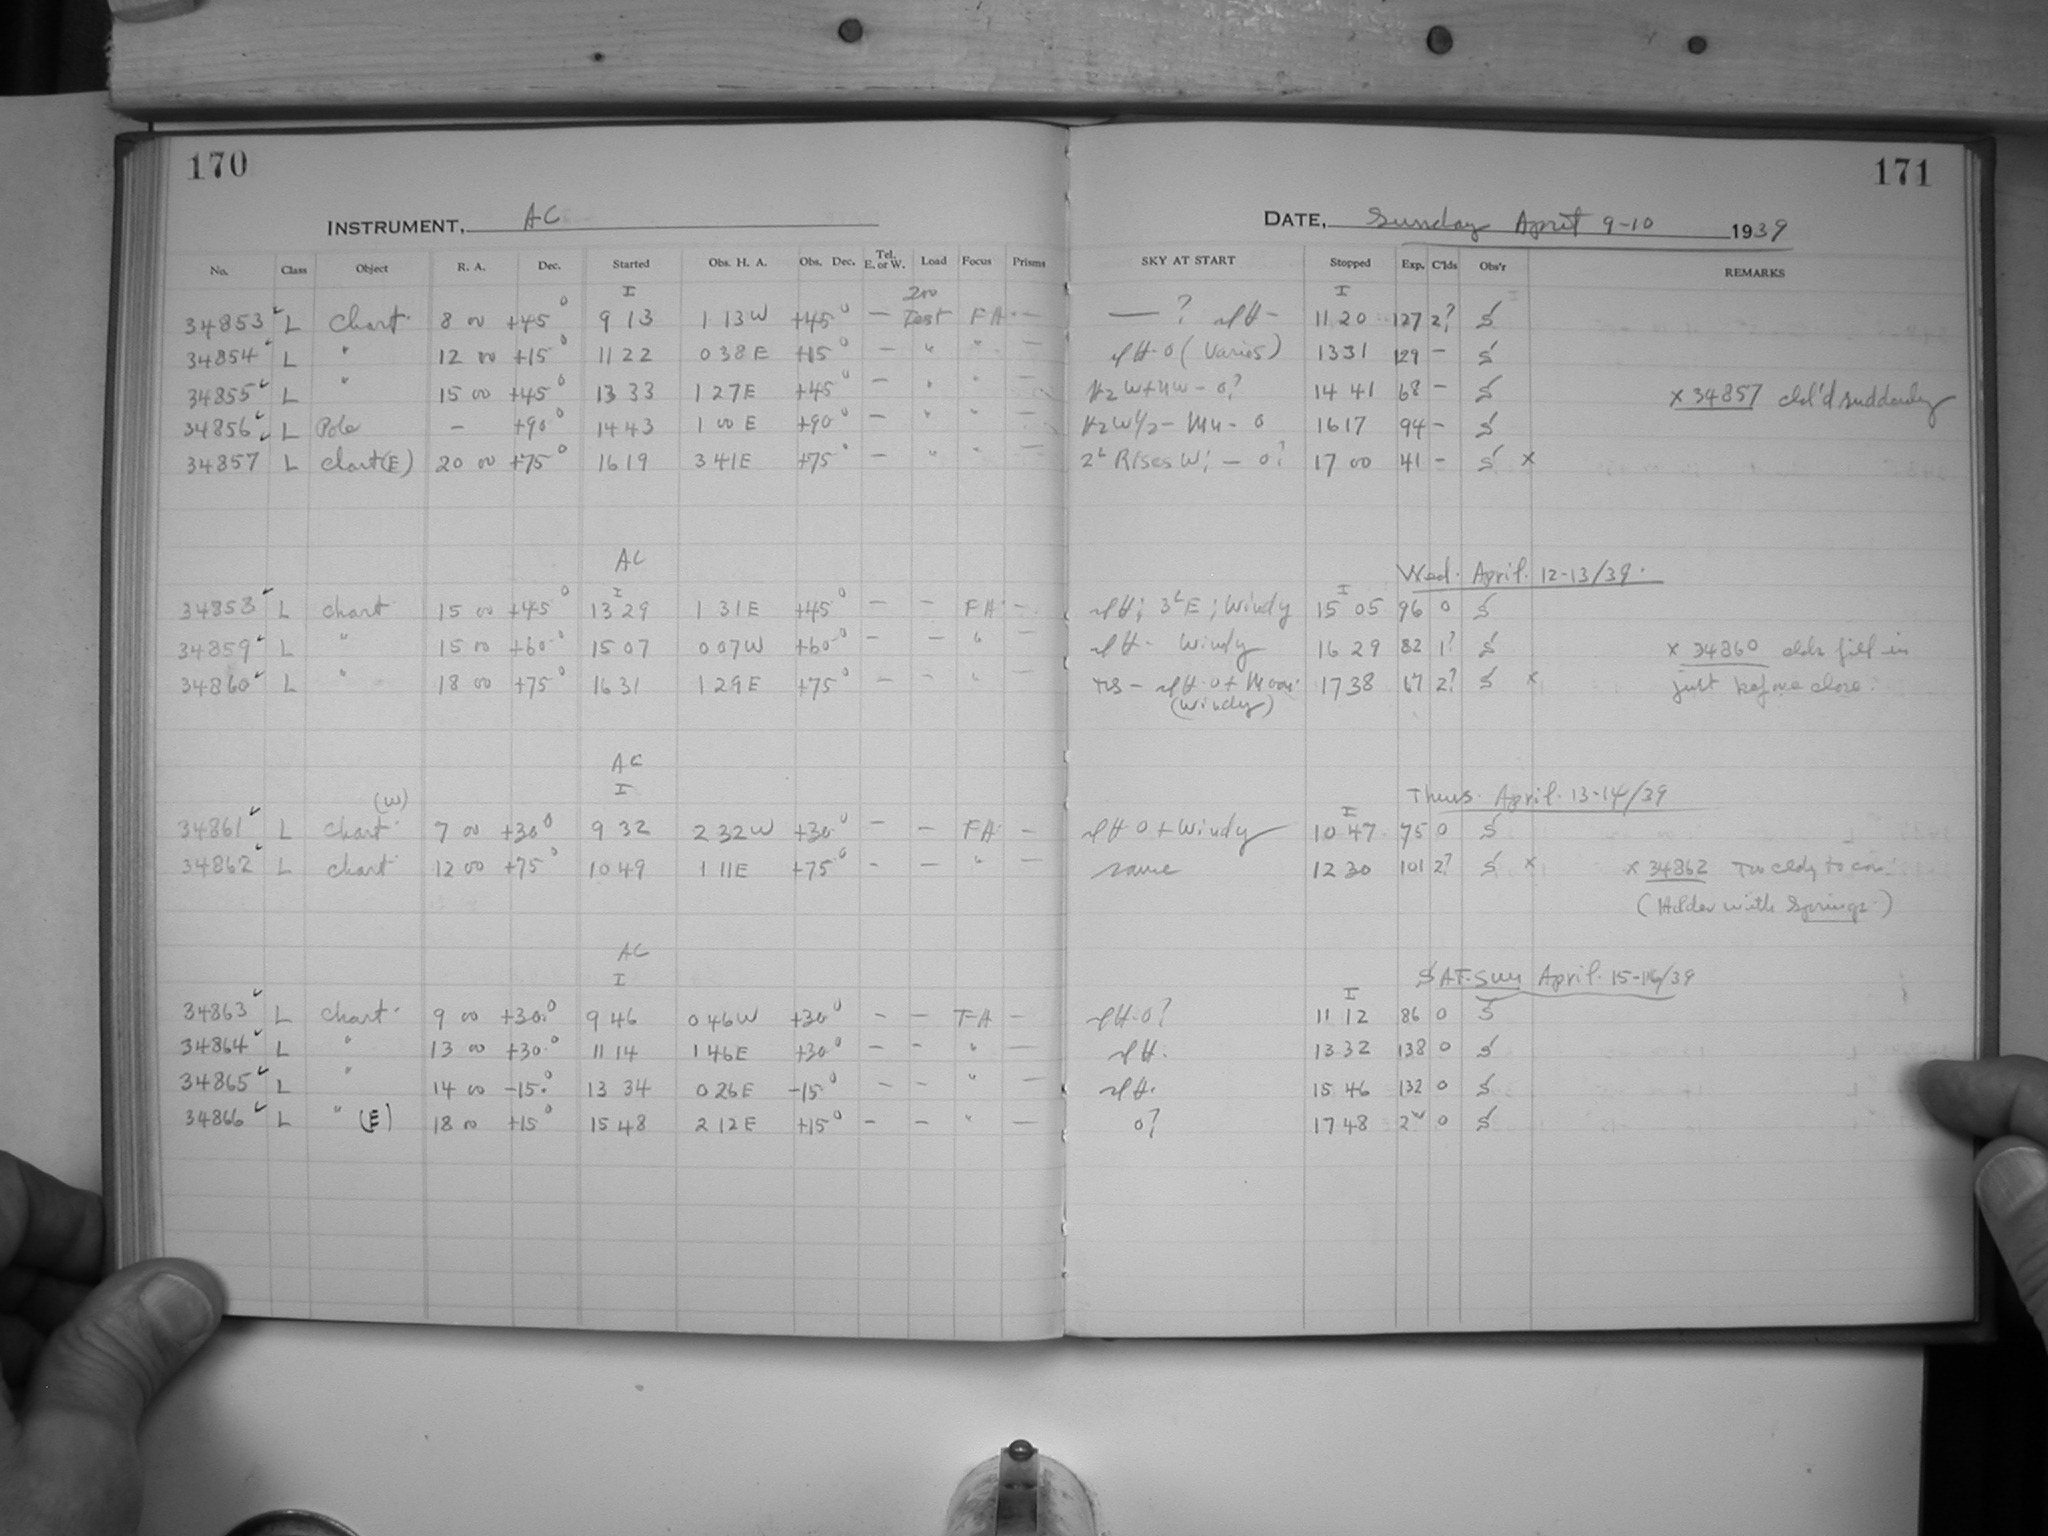 170
171
INSTRUMENT, AC
DATE, Sunday April 9-10 1939
No. Class Object R. A. Dec. Started Obs. H. A. Obs. Dec. Tel. E. or W. Load Focus Prisms SKY AT START Stopped Exp. C'lds Obs'r REMARKS
I 200 I
34853 ✓ L Chart 8 00 +45° 9 13 1 13 W +45° — Test FA — — ? 11 20 127 2? S
34854 ✓ L " 12 00 +15° 11 22 0 38 E +15° — " " — 13 31 129 — S
34855 ✓ L " 15 00 +45° 13 33 1 27 E +45° — " " — 14 41 68 — S x 34857 cld'd suddenly
34856 ✓ L Pole — +90° 14 43 1 00 E +90° — " " — 16 17 94 — S
34857 ✓ L Chart (E) 20 00 +75° 16 19 3 41 E +75° — " " — Rises W; — 0? 17 00 41 — S x
AC Wed. April 12-13/39.
I I
34858 ✓ L Chart 15 00 +45° 13 29 1 31 E +45° — — FA — Windy 15 05 96 0 S
34859 ✓ L " 15 00 +60° 15 07 0 07 W +60° — — " — Windy 16 29 82 1? S x 34860 clds fill in
34860 ✓ L " 18 00 +75° 16 31 1 29 E +75° — — " — 17 38 67 2? S x just before close.
(Windy)
AC
(W) I Thurs. April 13-14/39
I
34861 ✓ L Chart 7 00 +30° 9 32 2 32 W +30° — — FA — 0 + Windy 10 47 75 0 S
34862 ✓ L Chart 12 00 +75° 10 49 1 11 E +75° — — " — same 12 30 101 2? S x x 34862 Too cldy to con.
(Holder with Springs)
AC SAT-Sun April 15-16/39
I I
34863 ✓ L Chart 9 00 +30° 9 46 0 46 W +30° — — FA — 0? 11 12 86 0 S
34864 ✓ L " 13 00 +30° 11 14 1 46 E +30° — — " — 13 32 138 0 S
34865 ✓ L " 14 00 -15° 13 34 0 26 E -15° — — " — 15 46 132 0 S
34866 ✓ L " (E) 18 00 +15° 15 48 2 12 E +15° — — " — 0? 17 48 0 S